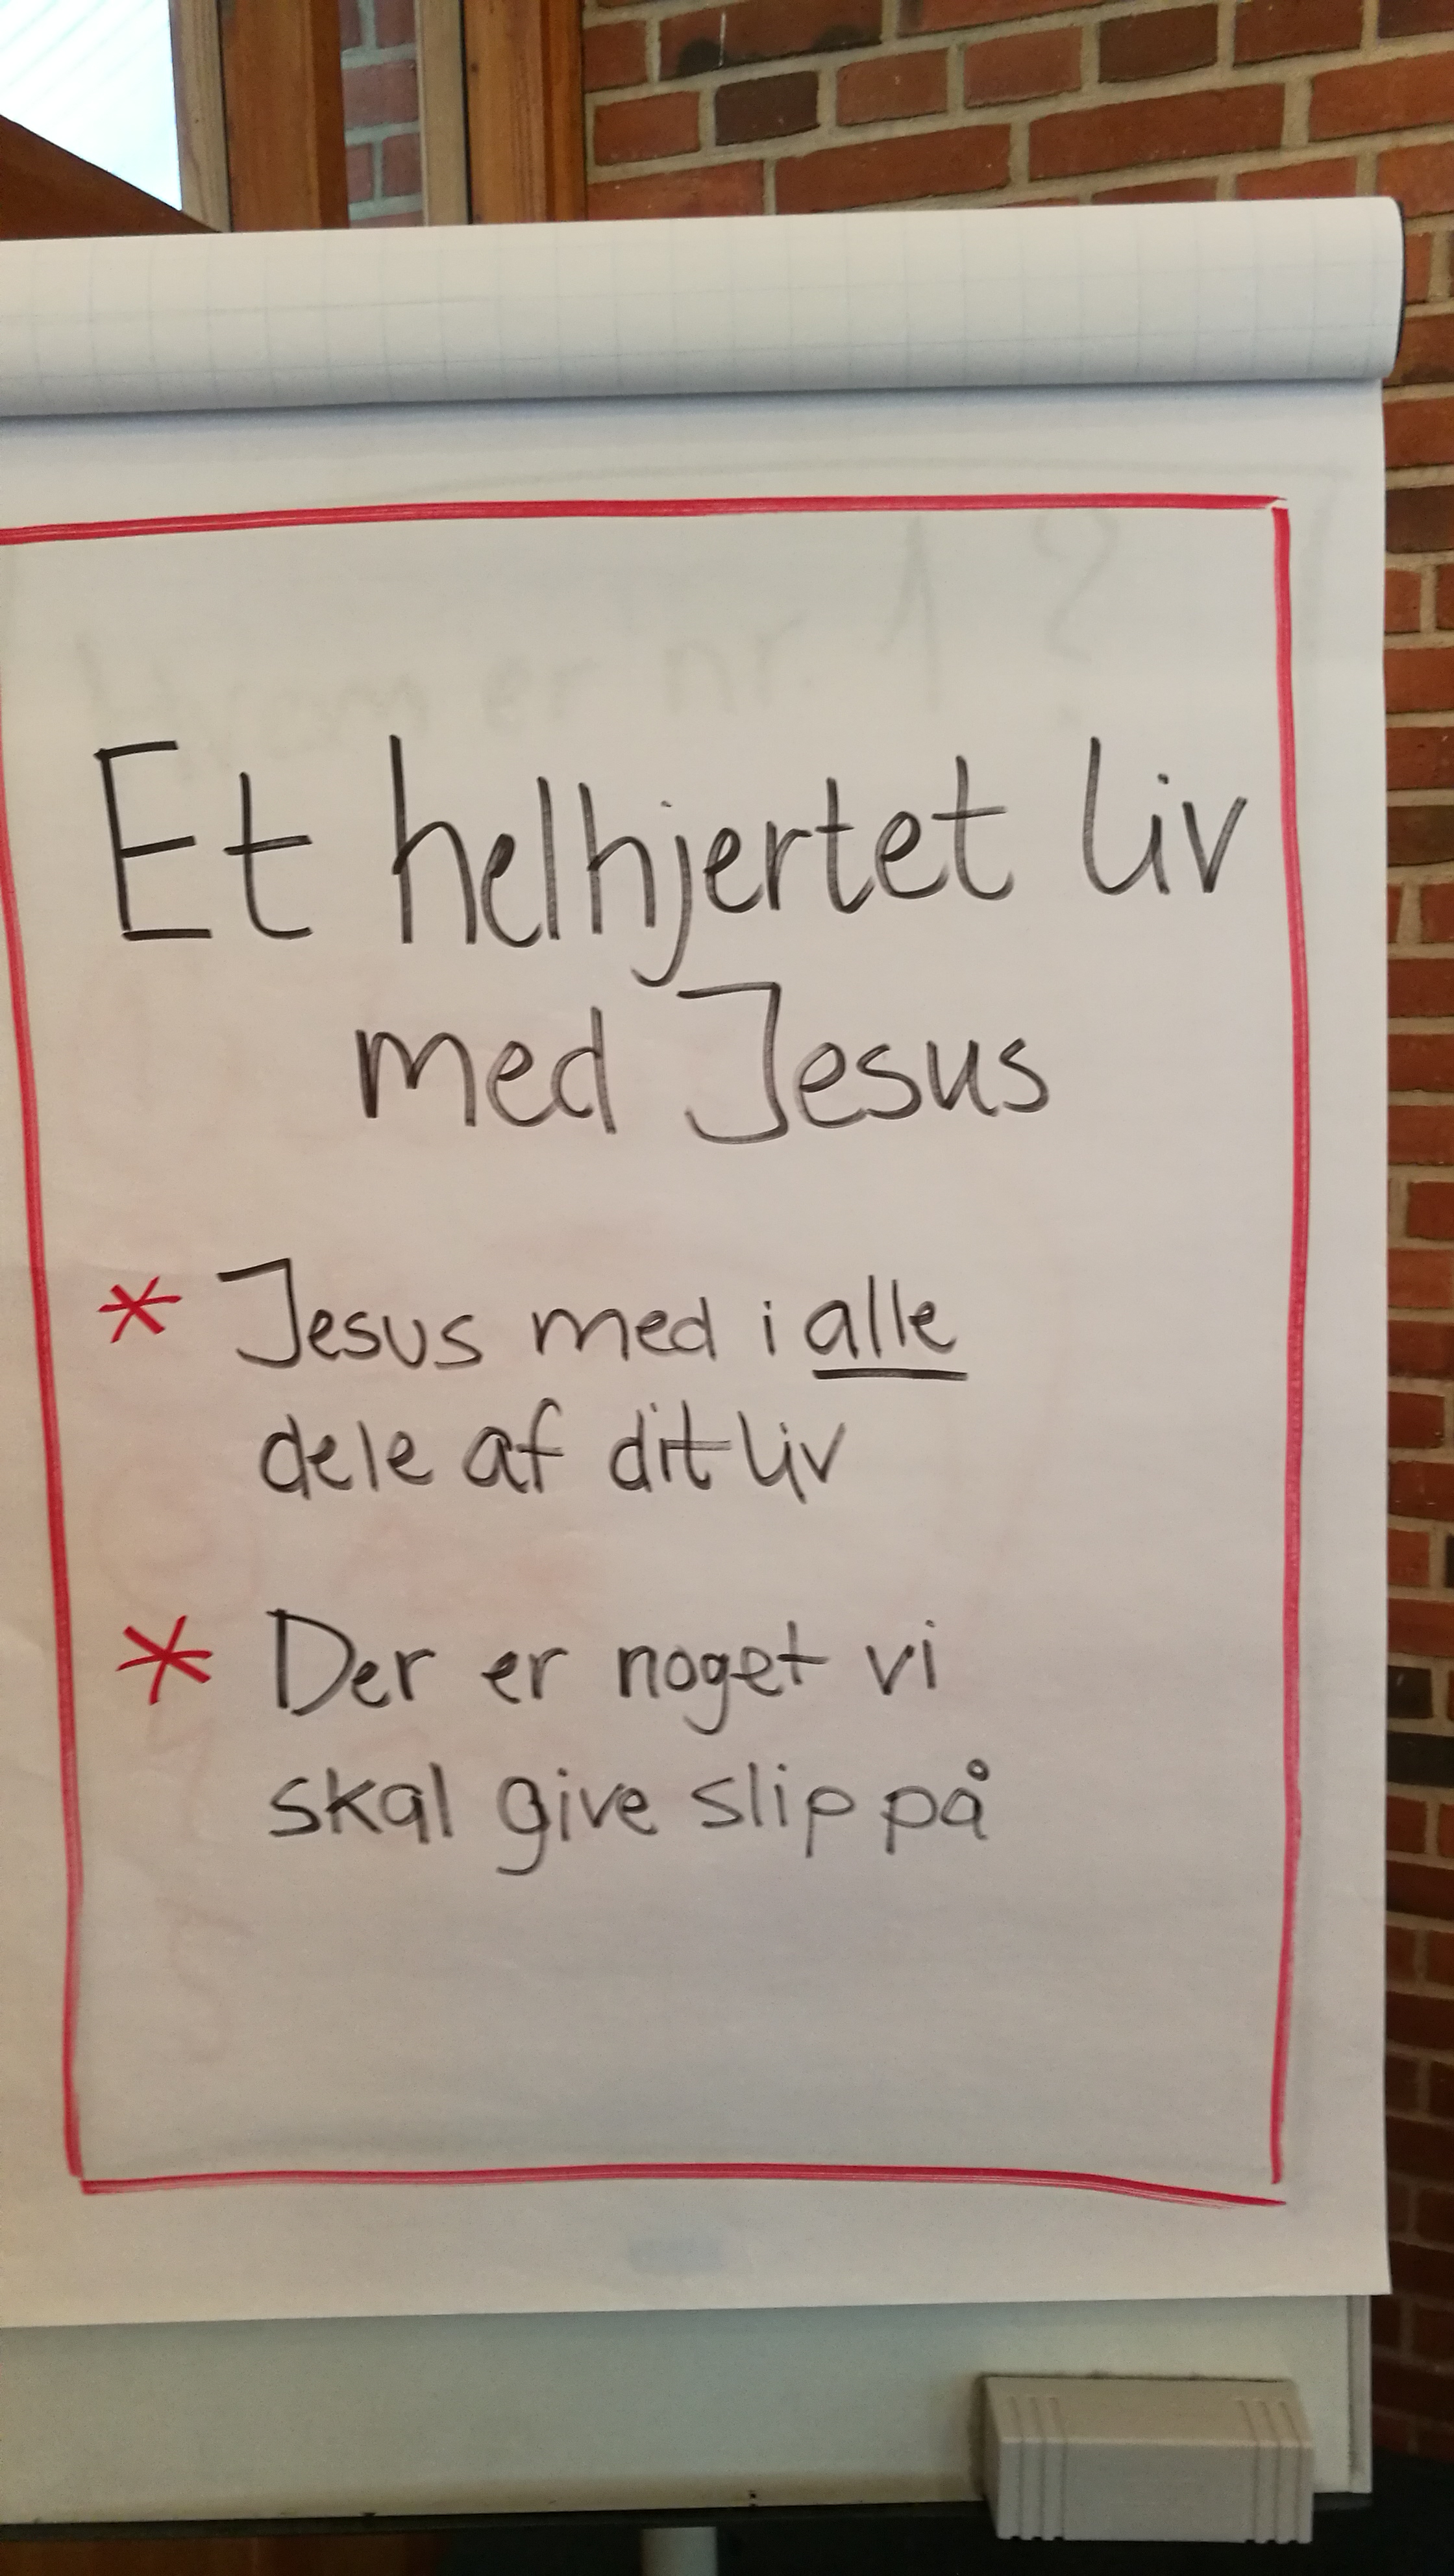 Hvem er nr. 1 ?
Et helhjertet liv
med Jesus
* Jesus med i alle
dele af dit liv
* Der er noget vi
skal give slip på